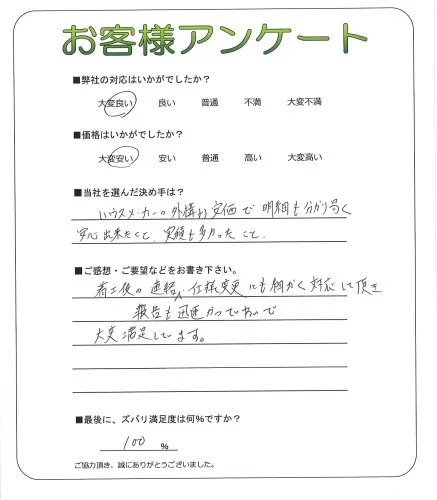 お客様アンケート
■弊社の対応はいかがでしたか？
大変良い 良い 普通 不満 大変不満
■価格はいかがでしたか？
大変安い 安い 普通 高い 大変高い
■当社を選んだ決め手は？
ハウスメーカーの外構より安価で明細も分かり易く
安心出来たことと、実績も多かったこと。
■ご感想・ご要望などをお書き下さい。
着工後の連絡、仕様変更にも細かく対応して頂き
報告も迅速かつていねいで
大変満足しています。
■最後に、ズバリ満足度は何％ですか？
100 ％
ご協力頂き、誠にありがとうございました。